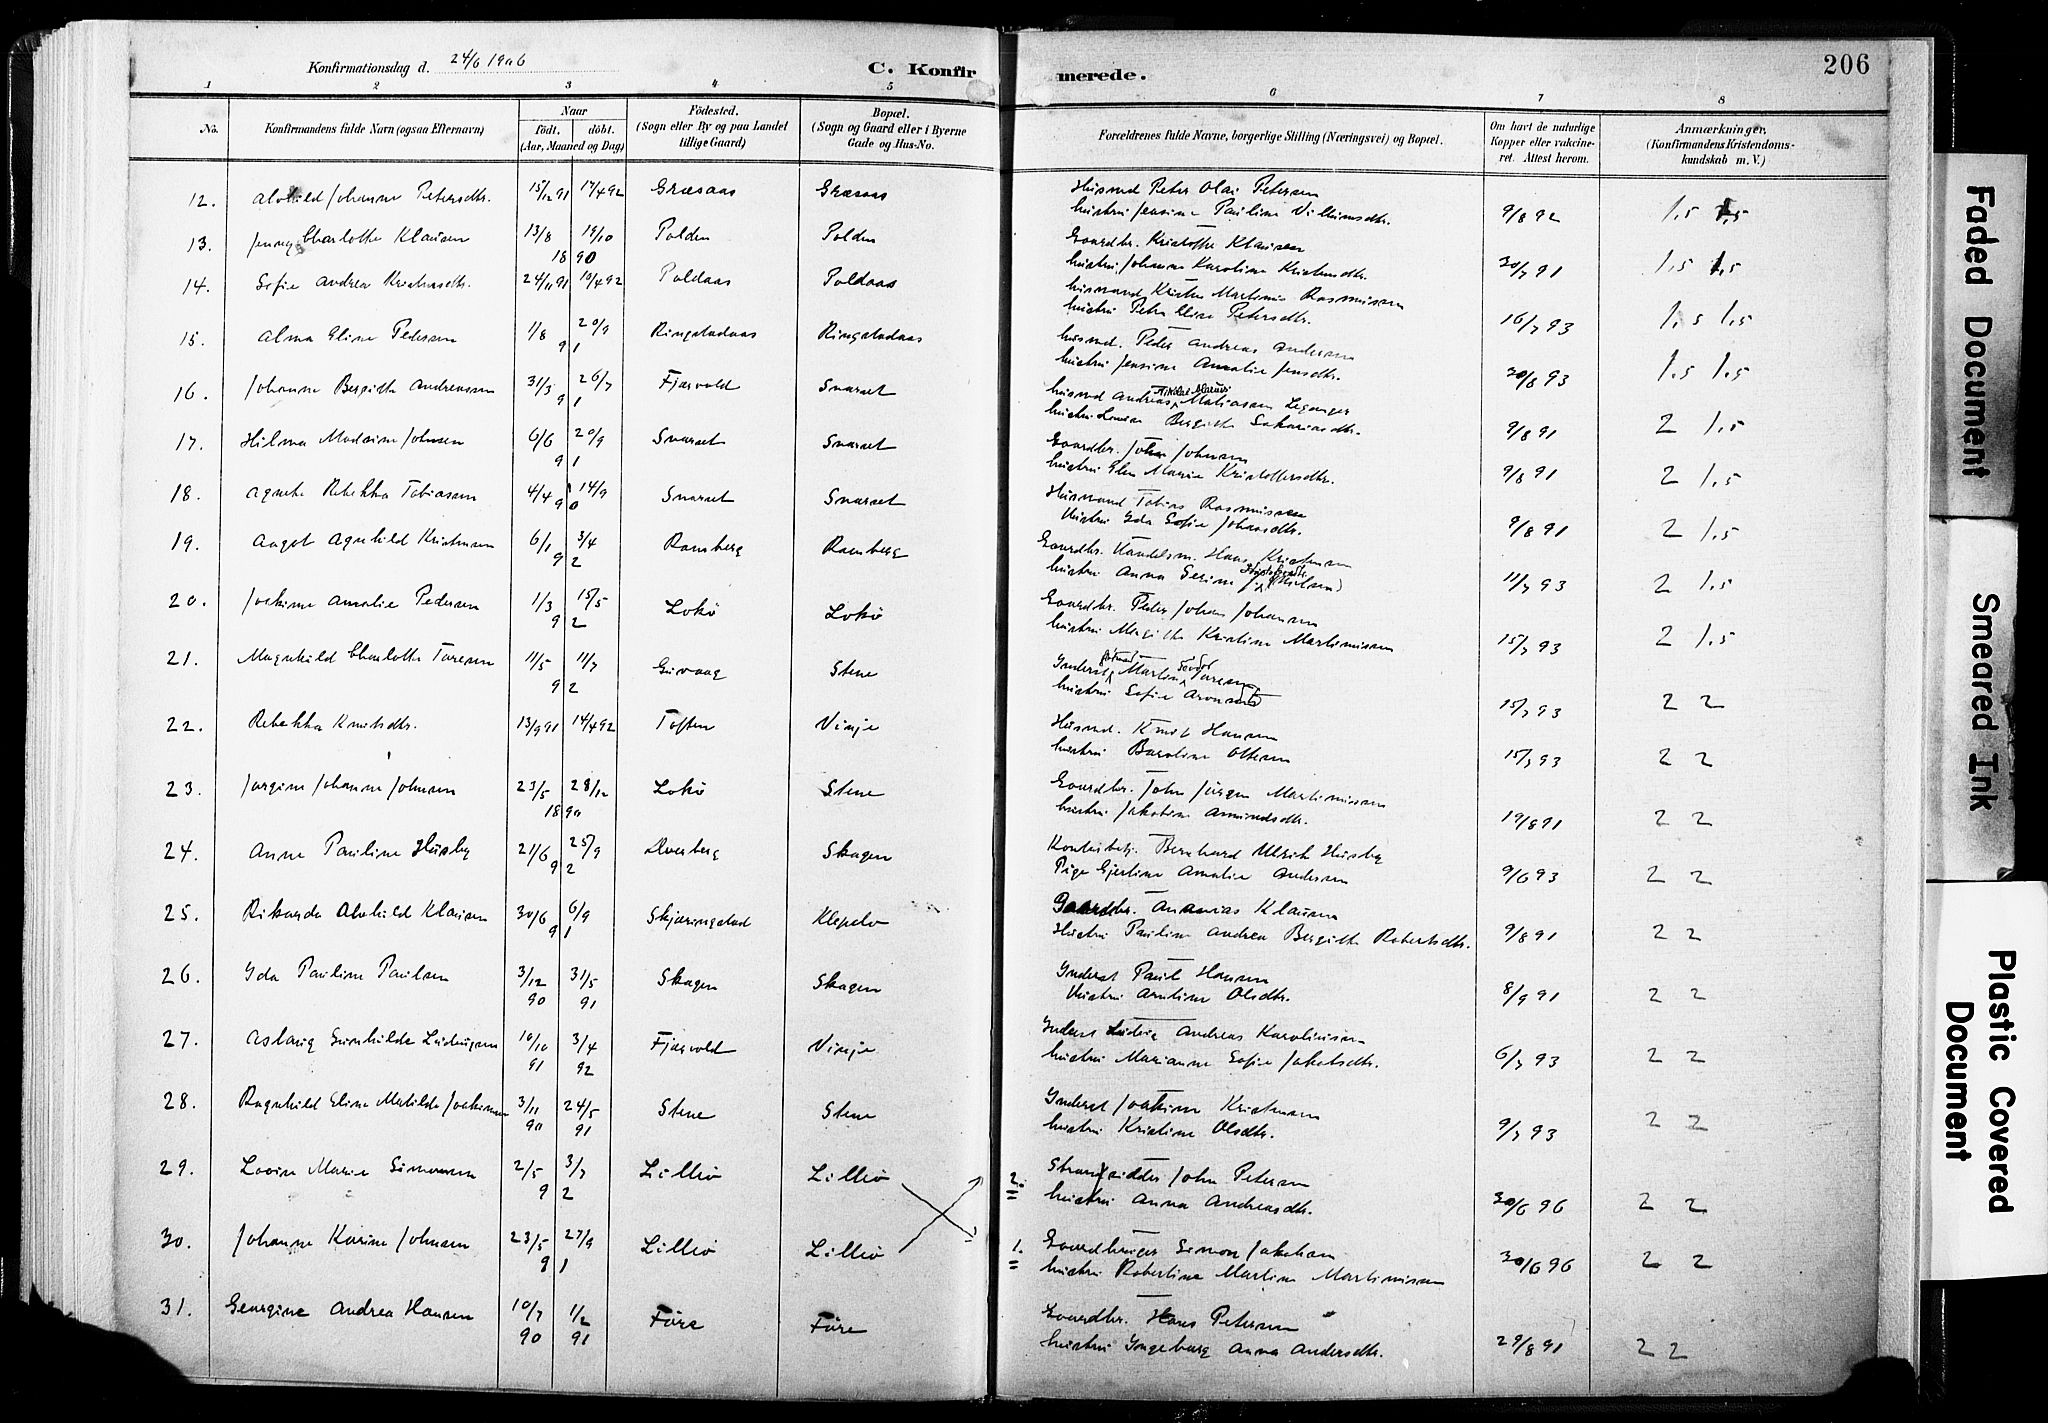 206
Konfirmationsdag d. 24/6 1906
C. Konfirmerede.
1 2 3 4 5 6 7 8
No.
Konfirmandens fulde Navn (ogsaa Efternavn)
Naar
født. døbt.
(Aar, Maaned og Dag)
Fødested.
(Sogn eller By og paa Landet
tillige Gaard)
Bopæl.
(Sogn og Gaard eller i Byerne
Gade og Hus-No.
Forældrenes fulde Navne, borgerlige Stilling (Næringsvei) og Bopæl.
Om havt de naturlige
Kopper eller vakcine-
ret. Attest herom.
Anmærkninger.
(Konfirmandens Kristendoms-
kundskab m. V.)
12. Alvhild Johanne Petersdtr. 15/12 91 17/4 92 Græsaas Græsaas
Husmd Peter Olai Petersen
hustru Jensine Pauline Vilhumsdtr. 9/8 92 1,5 1,5
13. Jenny Charlotte Klausen 13/8 19/10 1890 Polden Polden
Gaardbr. Kristoffer Klausen
hustru Johanne Karoline Kristensdtr. 30/7 91 1,5 1,5
14. Sofie Andrea Kristensdtr. 24/11 91 19/4 92 Poldaas Poldaas
husmand Kristen Martinus Rasmussen
hustru Petra Elise Petersdtr. 16/7 93 1,5 1,5
15. Alma Eline Pedersen 1/8 20/9 91 Ringstadaas Ringstadaas
husmd. Peder Andreas Andersen
hustru Jensine Amalie Jensdtr. 30/8 93 1,5 1,5
16. Johanne Bergitte Andreassen 31/3 26/7 91 Fjærvold Snarset
husmd Andreas Nikolai Maurits Matiassen Leganger
hustru Lovise Bergitte Sakariasdtr. 9/8 91 2 1,5
17. Hilma Madsine Johnsen 6/6 20/9 91 Snarset Snarset
Gaardbr. John Johnsen
hustru Elen Marie Kristoffersdtr. 9/8 91 2 1,5
18. Agnete Rebekka Tobiassen 4/4 14/9 90 Snarset Snarset
Husmand Tobias Rasmussen
Hustru Ida Sofie Johansdtr. 9/8 91 2 1,5
19. Aagot Agnhild Kristensen 6/1 3/4 92 Ramberg Ramberg
Gaardbr. Handelsm. Hans Kristensen
hustru Anna Serine 11/7 93 2 1,5
20. Joakime Amalie Pedersen 1/3 15/5 92 Lokø Lokø
Gaardbr. Peder Johan Johansen
hustru Margitte Kristine Martinussen 15/7 93 2 1,5
21. Magnhild Charlotte Toresen 11/5 11/7 92 Guvaag Stene
Inderst Martin Toresen
hustru Sofie 15/7 93 2 2
22. Rebekka Knutsdtr. 13/9 91 14/4 92 Toften Vinje
Husmd. Knut Hansen
hustru Baroline Ottesen 15/7 93 2 2
23. Jørgine Johanne Johnsen 23/5 28/12 1890 Lokø Stene
Gaardbr. John Jørgen Martinussen
hustru Jakobine Amundsdtr. 19/8 91 2 2
24. Anne Pauline Husby 21/6 25/9 92 Dverberg Skagen
Kontorbetj. Bernhard Ulrik Husby
Pige Gjertine Amalie Andersen 9/6 93 2 2
25. Rikarda Alvhild Klausen 30/6 6/9 91 Skjæringstad Klepelv
Gaardbr. Ananias Klausen
Hustru Pauline Andrea Bergitte Robertsdtr. 9/8 91 2 2
26. Ida Pauline Paulsen 3/12 90 31/5 91 Skagen Skagen
Inderst Paul Hansen
Hustru Arntine Olsdtr. 8/9 91 2 2
27. Aslaug Gunhilde Ludvigsen 10/10 91 3/4 92 Fjærvold Vinje
Inderst Ludvig Andreas Karoliussen
hustru Marianne Sofie Jakobsdtr. 6/7 93 2 2
28. Ragnhild Eline Matilde Joakimsen 3/11 90 24/5 91 Stene Stene
Inderst Joakim Kristensen
hustru Kristine Olsdtr. 9/7 93 2 2
29. Lovise Marie Simonsen 2/5 3/7 92 Lilleø Lilleø
2. Strandsidder John Petersen
hustru Anna Andreasdtr. 30/6 96 2 2
30. Johanne Karine Johnsen 23/5 27/9 91 Lilleø Lilleø
1. Gaardbruger Simon Jakobsen
hustru Robertine Martine Martinussen 30/6 96 2 2
31. Georgine Andrea Hansen 10/7 90 1/2 91 Føre Føre
Gaardbr. Hans Petersen
hustru Ingeborg Anna Andersdtr. 29/8 91 2 2
Faded Document
Smeared Ink
Plastic Covered
Document